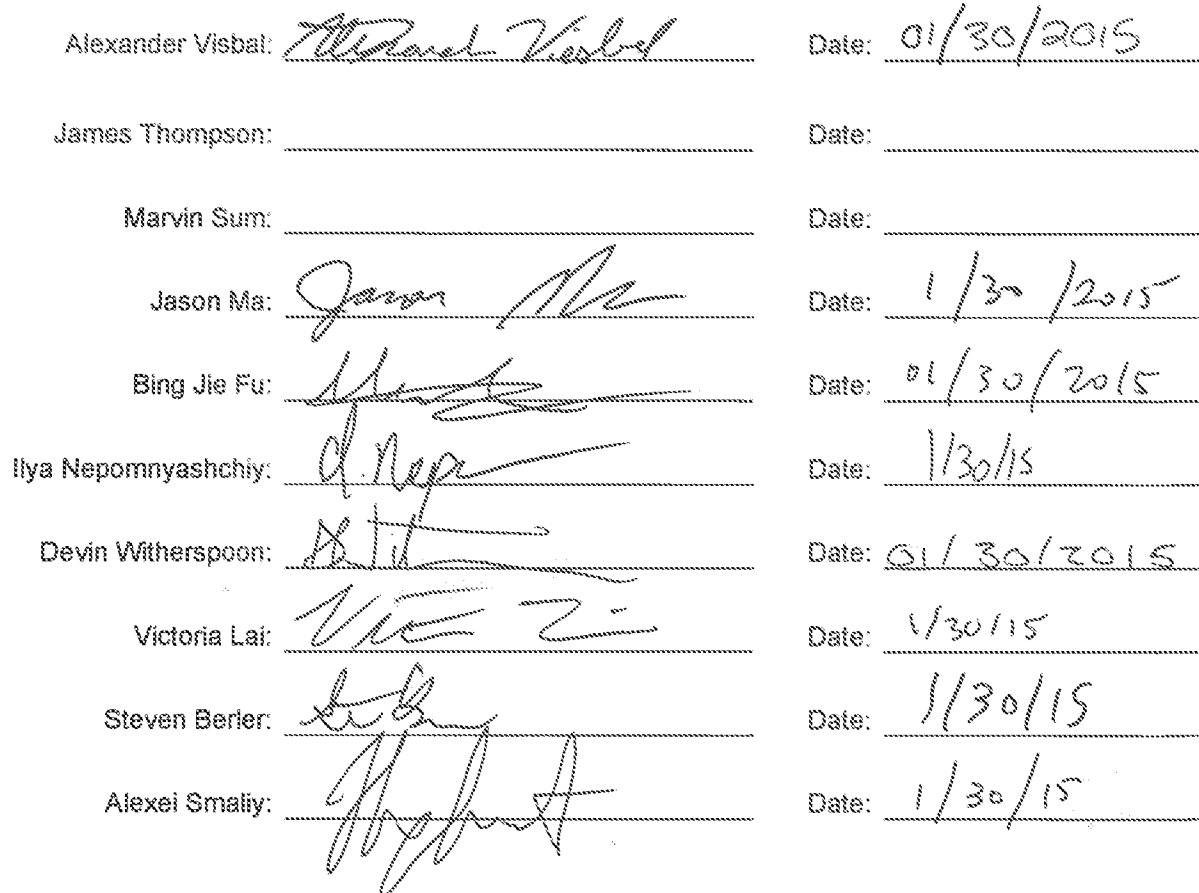 Alexander Visbal: Alexander Visbal Date: 01/30/2015
James Thompson: Date:
Marvin Sum: Date:
Jason Ma: Jason Ma Date: 1/30/2015
Bing Jie Fu: Date: 01/30/2015
Ilya Nepomnyashchiy: Date: 1/30/15
Devin Witherspoon: Date: 01/30/2015
Victoria Lai: Date: 1/30/15
Steven Berler: Date: 1/30/15
Alexei Smaliy: Date: 1/30/15